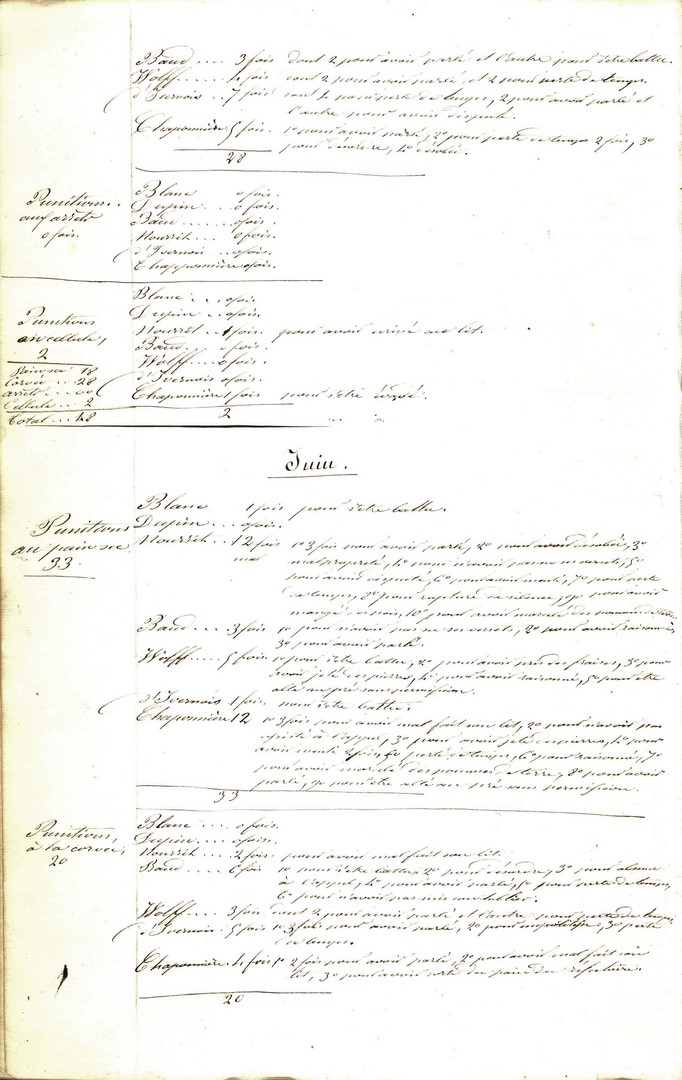 Baud .... 3 fois dont 2 pour avoir parlé et l'autre pour s'etre battu.
Wolff ..... 4 fois dont 2 pour avoir parlé, et 2 pour perte de temps.
d'Ivernois .. 7 fois dont 4 pour perte de temps, 2 pour avoir parlé et
l'autre pour avoir disputé.
Chaponnière 5 fois. 1o pour avoir parlé, 2o pour perte de temps 2 fois, 3o
pour désordre, 4o
28
Punitions.
aux arrets
0 fois.
Blanc 0 fois.
Dupin ... 0 fois.
Baud ...... 0 fois.
Nourrit ... 0 fois.
d'Ivernois .. 0 fois.
Chapponnière 0 fois.
Punitions
en cellule,
2
Blanc ... 0 fois.
Dupin ... 0 fois.
Nourrit .. 1 fois. pour avoir uriné au lit.
Baud ... 0 fois.
Wolff .... 0 fois.
d'Ivernois 0 fois.
Chaponnière 1 fois pour s'etre évadé.
2
Pain sec 18
Corvée ... 28
arrets .... 00
Cellule ... 2
Total ... 48
Juin.
Punitions
au pain sec
33
Blanc 1 fois pour s'etre battu.
Dupin ... 0 fois.
Nourrit .. 12 fois 1o 3 fois pour avoir parlé, 2o pour avoir désobéi, 3o
malpropreté, 4o pour n'avoir pas 5o
pour avoir 6o pour avoir menti, 7o pour perte
de temps, 8o pour rupture de silence, 9o pour avoir
mangé des noix, 10o pour avoir des pommes de terre
Baud .... 3 fois 1o pour n'avoir pas 2o pour avoir raisonné,
3o pour avoir parlé.
Wolff .... 5 fois 1o pour s'etre battu, 2o pour avoir pris des fraises, 3o pour
avoir jeté des pierres, 4o pour avoir raisonné, 5o pour etre
allé au pré sans permission.
d'Ivernois 1 fois. pour s'etre battu.
Chaponnière 12 1o 3 fois pour avoir mal fait son lit, 2o pour n'avoir pas
à l'appel, 3o pour avoir jeté des pierres, 4o pour
avoir menti 2 fois, 5o perte de temps, 6o pour raisonné, 7o
pour avoir des pommes de terre, 8o pour avoir
parlé, 9o pour etre allé au pré sans permission.
33
Punitions,
à la corvée,
20
Blanc .... 0 fois.
Dupin .... 0 fois.
Nourrit ... 2 fois pour avoir mal fait son lit.
Baud .... 6 fois 1o pour s'etre battu, 2o pour désordre, 3o pour absence
à l'appel, 4o pour avoir parlé, 5o pour perte de temps,
6o pour n'avoir pas mis son
Wolff .... 3 fois dont 2 pour avoir parlé et l'autre pour perte de temps
d'Ivernois .. 5 fois 1o 3 fois pour avoir parlé, 2o pour 3o perte
de temps.
Chaponnière 4 fois 1o 2 fois pour avoir parlé, 2o pour avoir mal fait son
lit, 3o pour avoir du pain du réfectoire.
20